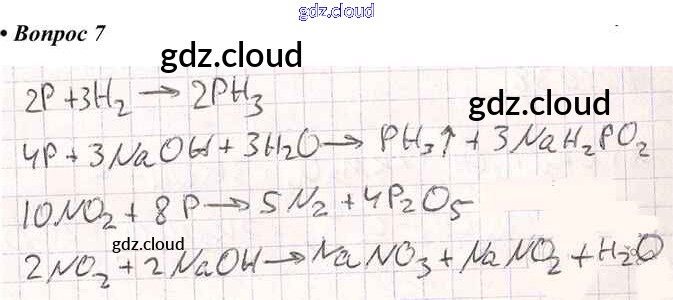 gdz.cloud
• Вопрос 7
gdz.cloud
2P + 3H₂ → 2PH₃
gdz.cloud
4P + 3NaOH + 3H₂O → PH₃↑ + 3NaH₂PO₂
10NO₂ + 8P → 5N₂ + 4P₂O₅
gdz.cloud
2NO₂ + 2NaOH → NaNO₃ + NaNO₂ + H₂O